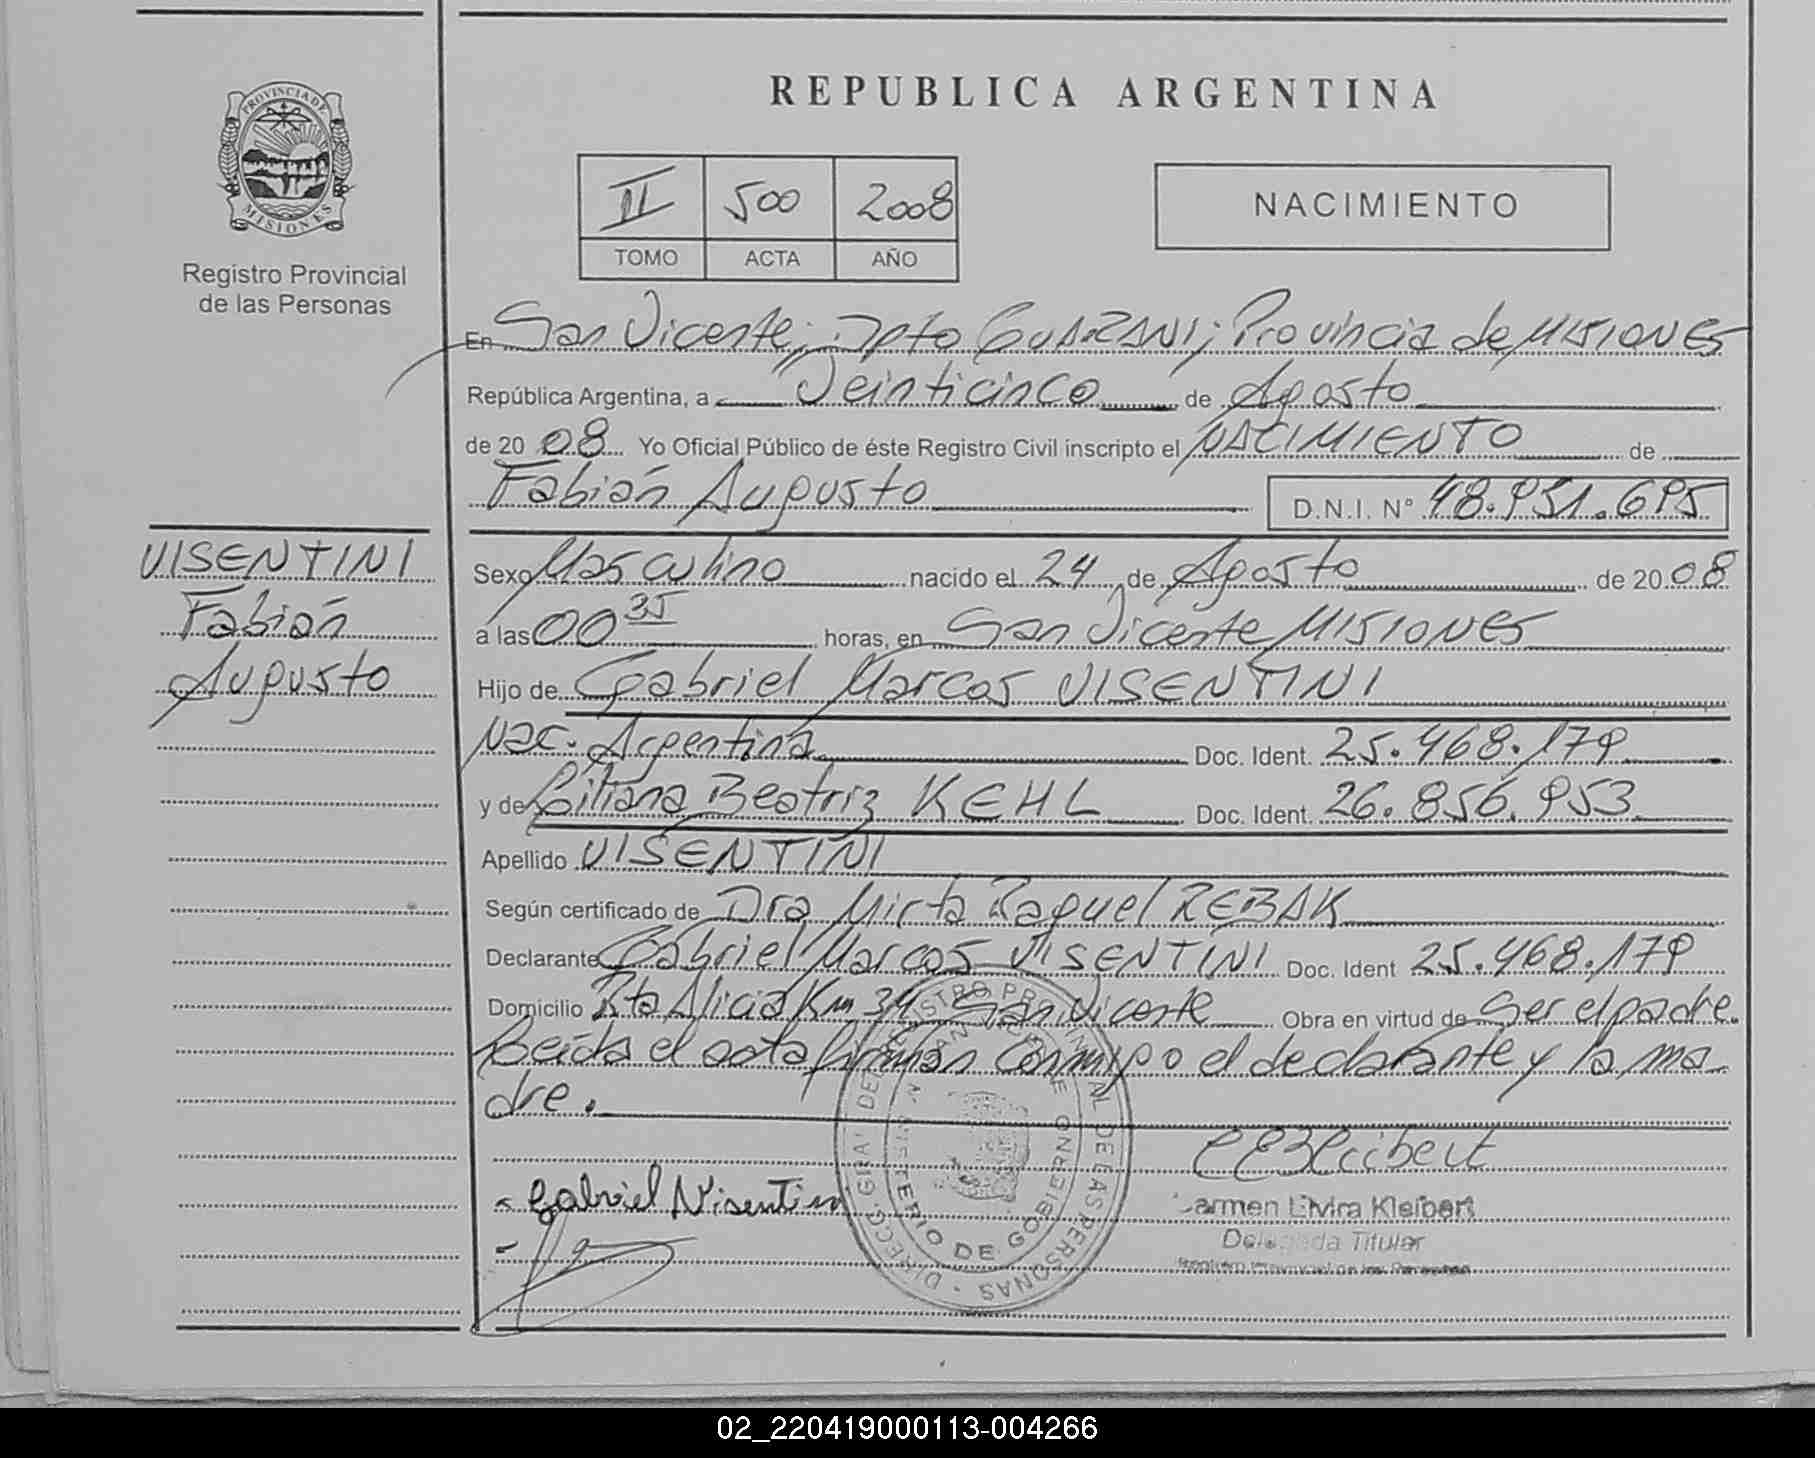 REPUBLICA ARGENTINA
PROVINCIA DE
MISIONES
Registro Provincial
de las Personas
II 500 2008
TOMO ACTA AÑO
NACIMIENTO
En San Vicente; Dpto GUARANI; Provincia de MISIONES
República Argentina, a Veinticinco de Agosto
de 20 08 Yo Oficial Público de éste Registro Civil inscripto el NACIMIENTO de
Fabián Augusto D.N.I. Nº 48.951.695
VISENTINI
Fabián
Augusto
Sexo Masculino nacido el 24 de Agosto de 20 08
a las 00 35 horas, en San Vicente MISIONES
Hijo de Gabriel Marcos VISENTINI
Nac. Argentina Doc. Ident. 25.468.179
y de Liliana Beatriz KEHL Doc. Ident. 26.856.953
Apellido VISENTINI
Según certificado de Dra Mirta Raquel REBAK
Declarante Gabriel Marcos VISENTINI Doc. Ident 25.468.179
Domicilio Rta Alicia Km 34 San Vicente Obra en virtud de Ser el padre.
Leída el acta firman conmigo el declarante y la ma
dre.
Gabriel Visentini
Carmen Elvira Kleibert
Delegada Titular
Registro Provincial de las Personas
DIRECC. GRAL DEL REGISTRO PROVINCIAL DE LAS PERSONAS
MINISTERIO DE GOBIERNO
02_220419000113-004266